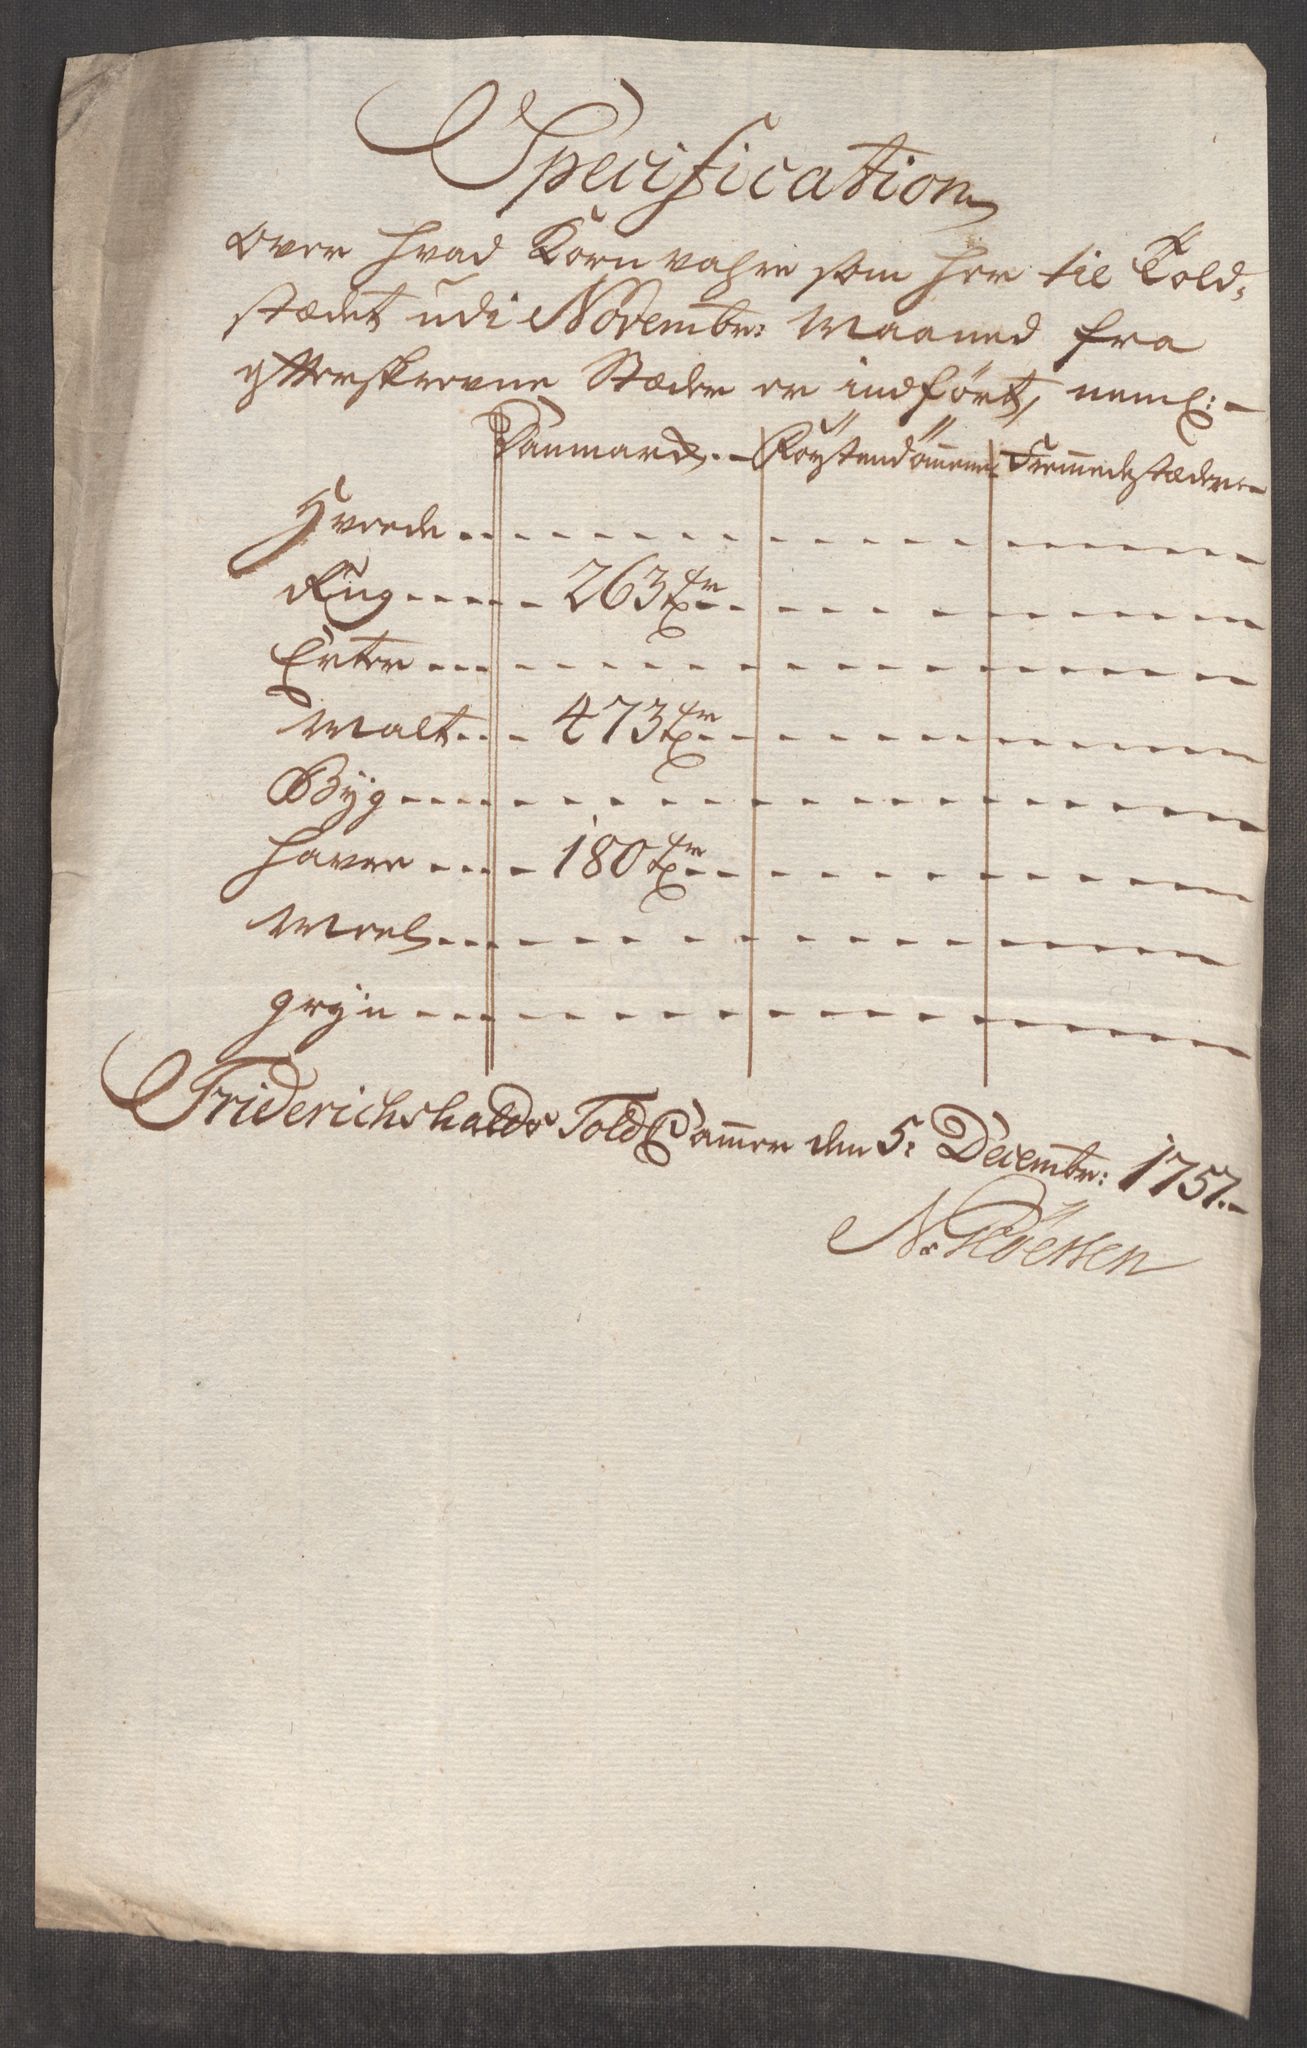 Specification
Over hvad Korn vahre som her til Told-
stædet udi Novembr: Maaned fra
efterskrevne Stæder er indført, neml: -
Danmark. - Førstendömmene Fremmede stæder. -
Hvede - - -
Rug - - - 263 Tr
Erter - - -
Malt - - - 473 Tr
Byg - - -
Haver - - - 180 Tr
Meel - - -
gryn - - -
Friderichshalds Told Cammer den 5: Decembr: 1757. -
N.